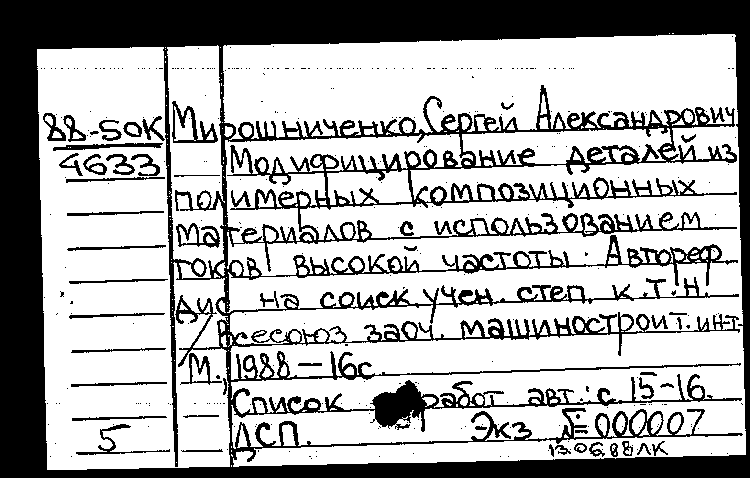 88-50К Мирошниченко, Сергей Александрович
4633 Модифицирование деталей из
полимерных композиционных
материалов с использованием
токов высокой частоты. Автореф.
дис на соиск. учен. степ. к.т.н.
/ Всесоюз заоч. машиностроит. ин-т.
М., 1988 – 16с.
Список работ авт.: с. 15-16.
5 ДСП. Экз №000007
13.06.88 ЛК